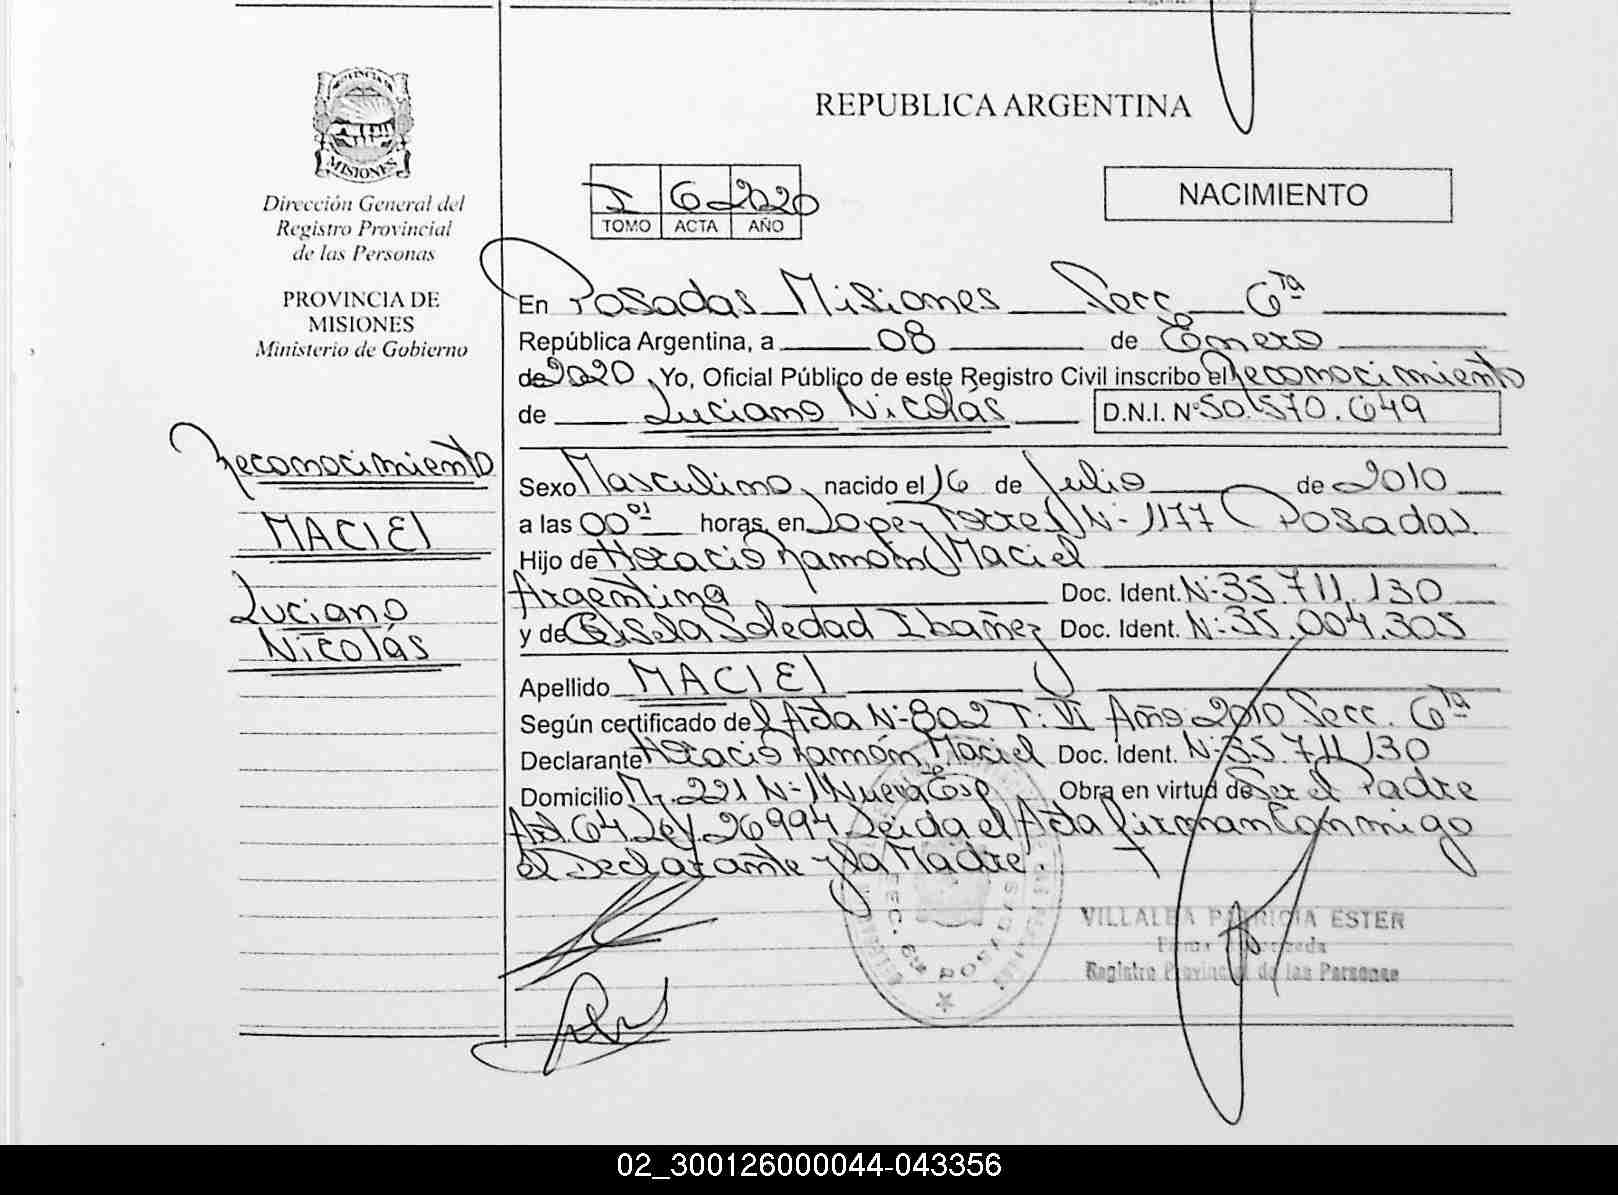 PROVINCIA DE
MISIONES
Dirección General del
Registro Provincial
de las Personas
PROVINCIA DE
MISIONES
Ministerio de Gobierno
Reconocimiento
MACIEl
Luciano
Nicolás
REPUBLICA ARGENTINA
I 6 2020
TOMO ACTA AÑO
NACIMIENTO
En Posadas Misiones Secc. 6ta
República Argentina, a 08 de Enero
de 2020, Yo, Oficial Público de este Registro Civil inscribo el Reconocimiento
de Luciano Nicolás D.N.I. Nº 50.570.649
Sexo Masculino, nacido el 16 de Julio de 2010
a las 00 01 horas, en Lopez Torres N- 1177 Posadas
Hijo de Horacio Ramón Maciel
Argentina Doc. Ident. N-35.711.130
y de Gisela Soledad Ibañez Doc. Ident. N-35.004.305
Apellido MACIEl
Según certificado del Acta N-802 T: VI Año 2010 Secc. 6ta
Declarante Horacio Ramón Maciel Doc. Ident. N-35.711.130
Domicilio Mz. 221 N-1 Nueva Esp Obra en virtud de Ser el Padre
Art. 64 Ley. 26994 Leida el Acta firman Conmigo
el Declarante y la Madre
SEC. 6ta POSADAS
VILLALBA PATRICIA ESTER
Registro Provincial de las Personas
02_300126000044-043356